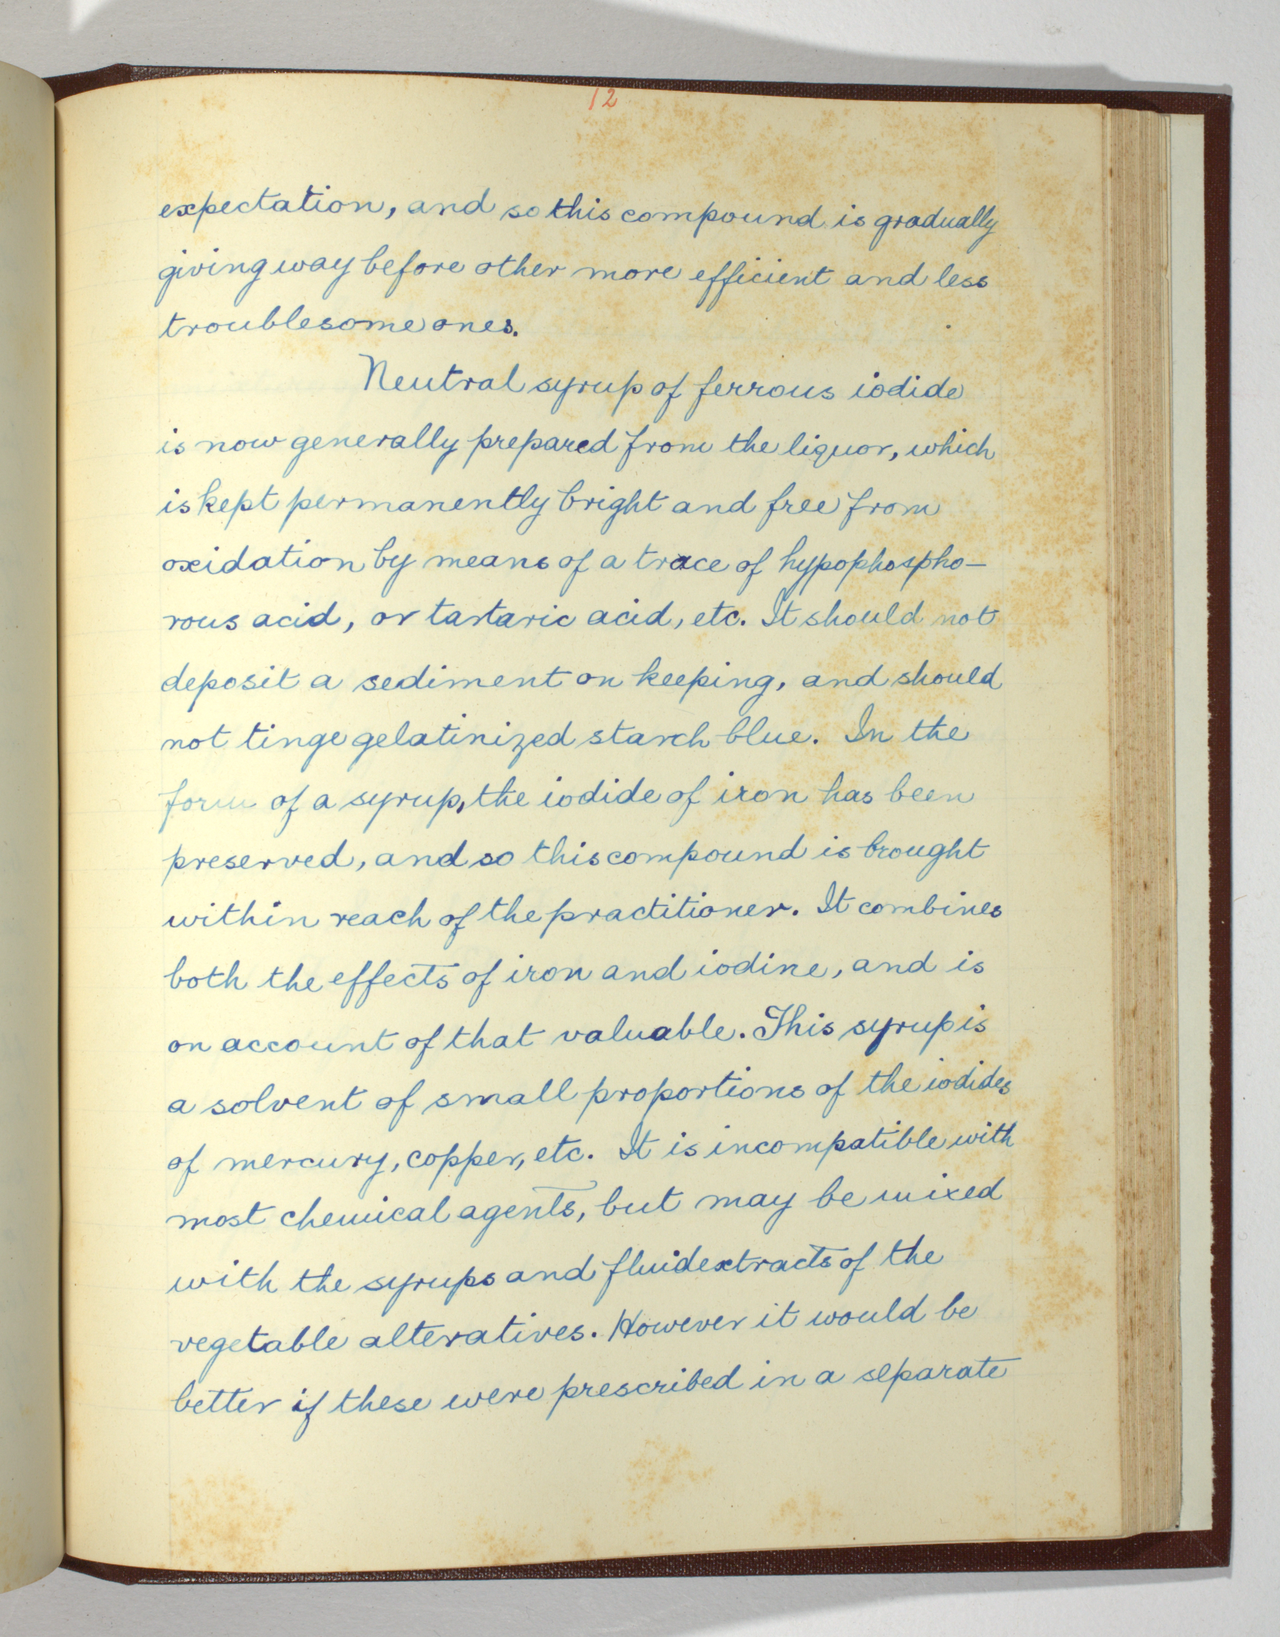 12
expectation, and so this compound is gradually
giving way before other more efficient and less
troublesome ones.
Neutral syrup of ferrous iodide
is now generally prepared from the liquor, which
is kept permanently bright and free from
oxidation by means of a trace of hypophospho-
rous acid, or tartaric acid, etc. It should not
deposit a sediment on keeping, and should
not tinge gelatinized starch blue. In the
form of a syrup, the iodide of iron has been
preserved, and so this compound is brought
within reach of the practitioner. It combines
both the effects of iron and iodine, and is
on account of that valuable. This syrup is
a solvent of small proportions of the iodides
of mercury, copper, etc. It is incompatible with
most chemical agents, but may be mixed
with the syrups and fluidextracts of the
vegetable alteratives. However it would be
better if these were prescribed in a separate